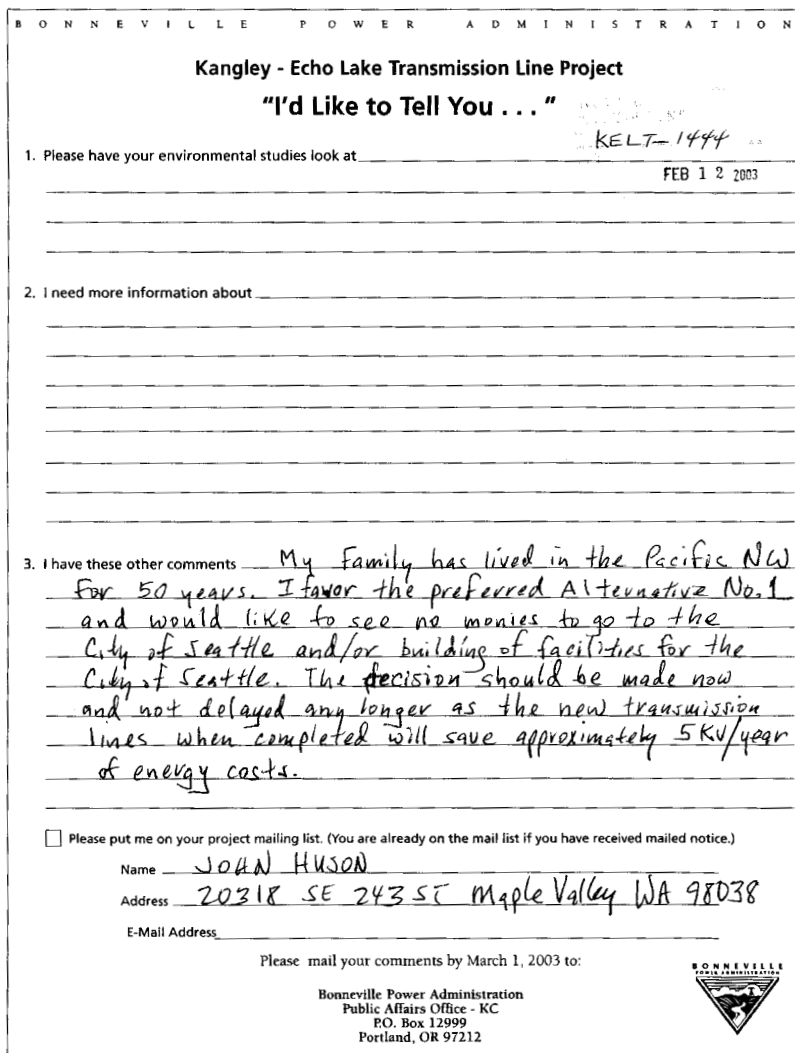 BONNEVILLE POWER ADMINISTRATION
Kangley - Echo Lake Transmission Line Project
"I'd Like to Tell You . . . "
KELT-1444
1. Please have your environmental studies look at
FEB 12 2003
2. I need more information about
3. I have these other comments My Family has lived in the Pacific NW
For 50 years. I favor the preferred Alternative No.1
and would like to see no monies to go to the
City of Seattle and/or building of facilities for the
City of Seattle. The decision should be made now
and not delayed any longer as the new transmission
lines when completed will save approximately 5KV/year
of energy costs.
Please put me on your project mailing list. (You are already on the mail list if you have received mailed notice.)
Name JOHN HUSON
Address 20318 SE 243 ST Maple Valley WA 98038
E-Mail Address
Please mail your comments by March 1, 2003 to:
BONNEVILLE
POWER ADMINISTRATION
Bonneville Power Administration
Public Affairs Office - KC
P.O. Box 12999
Portland, OR 97212